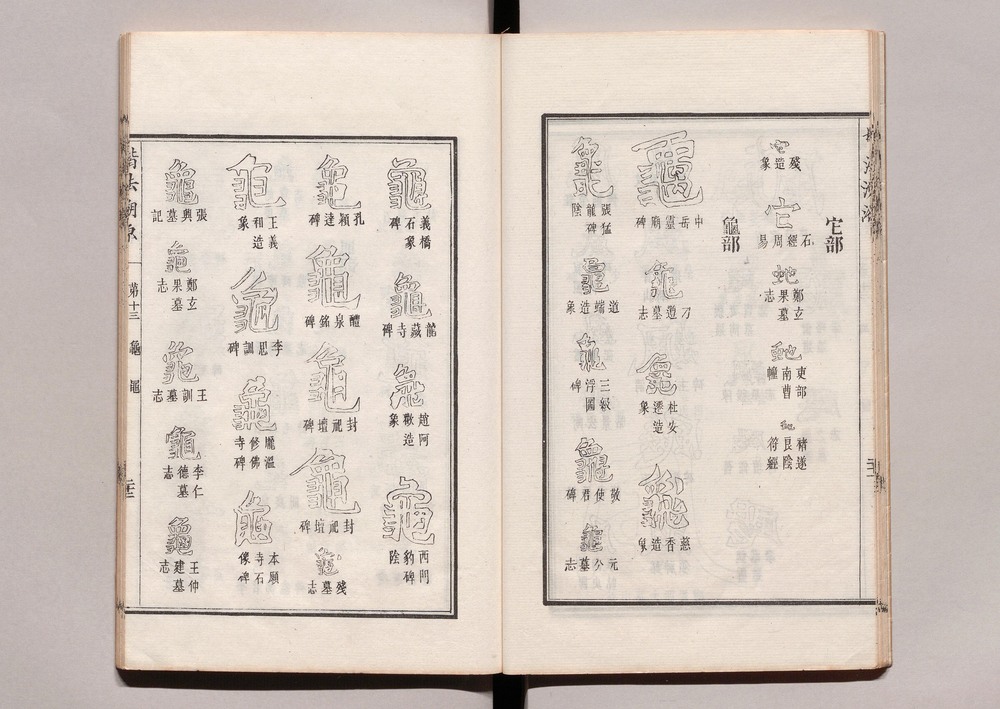 它部
殘造象
它
石經周易
虵
鄭玄果墓志
虵
吏部南曹幢
虵
褚遂良陰符經
龜部
龜
中岳靈廟碑
龜
刁遵墓志
龜
杜女遷造象
龜
慈香造象
龜
張猛龍碑陰
龜
道端造象
龜
三級浮圖碑
龜
敬使君碑
龜
元公墓志
龜
義橋石象碑
龜
龍藏寺碑
龜
趙阿歡造象
龜
西門豹碑陰
龜
孔穎達碑
龜
醴泉銘碑
龜
封祀壇碑
龜
封祀壇碑
龜
殘墓志
龜
王義和造象
龜
李思訓碑
龜
龎溫修佛寺碑
龜
本願寺石像碑
龜
張興墓記
龜
鄭玄果墓志
龜
王訓墓志
龜
李仁德墓志
龜
王仲建墓志
楷法溯原
第十三
龜
黽